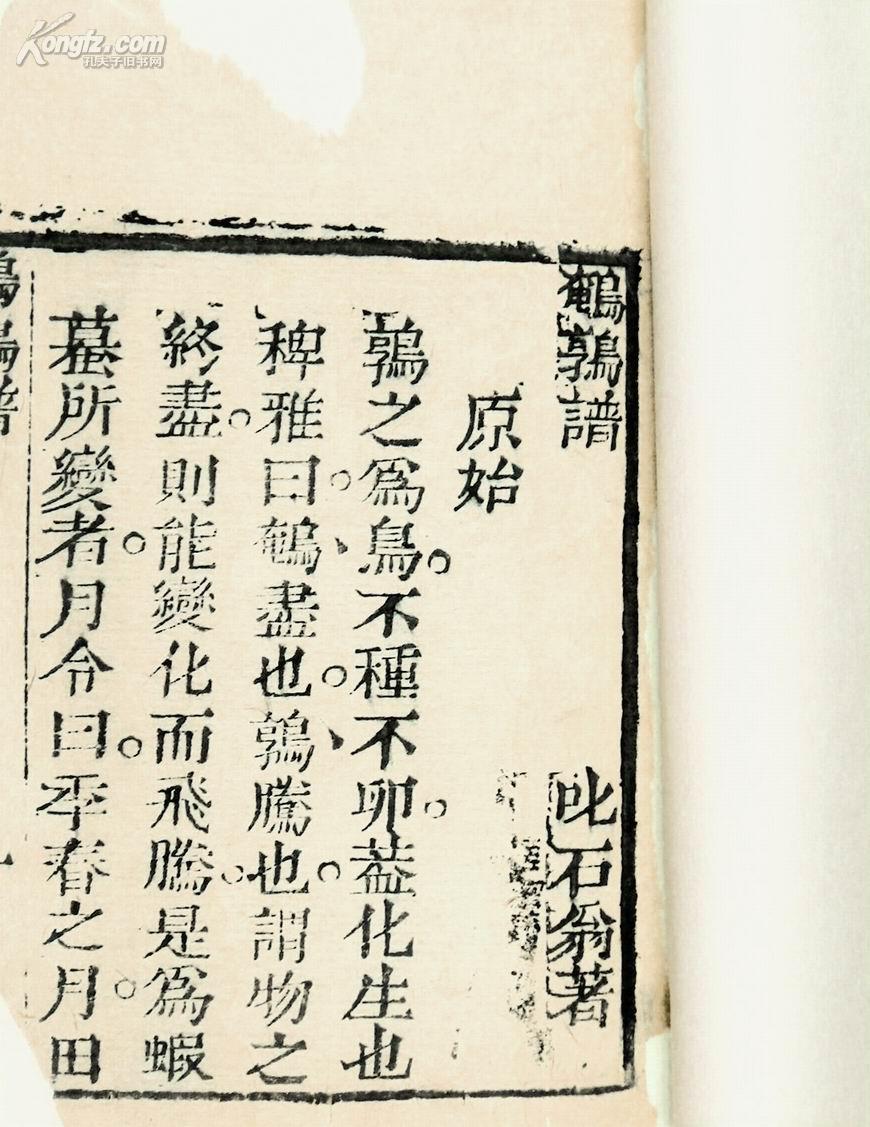 Kongfz.com
孔夫子旧书网
鵪鶉譜
叱石翁著
原始
鶉之爲鳥。不種不卵。葢化生也
稗雅曰。鵪、盡也。鶉、騰也。謂物之
終盡。則能變化而飛騰。是爲蝦
蟇所變者。月令曰。季春之月。田